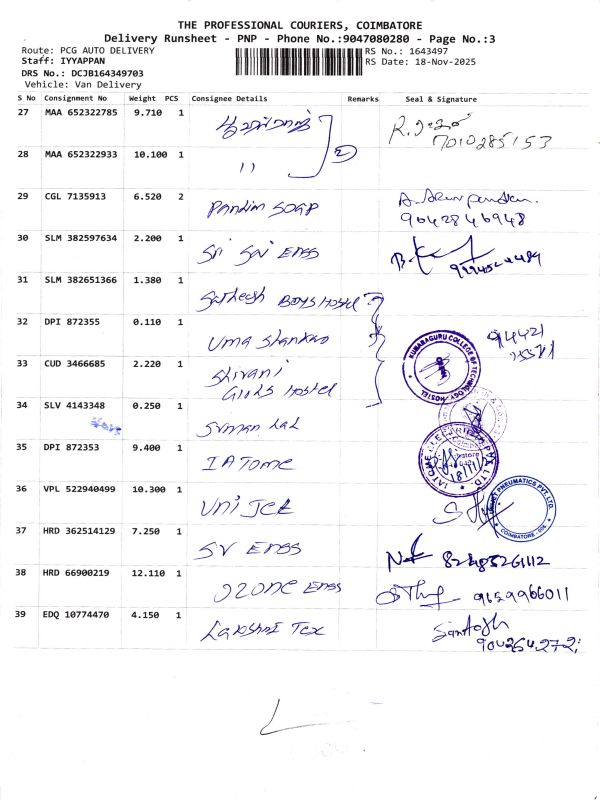 THE PROFESSIONAL COURIERS, COIMBATORE
Delivery Runsheet - PNP - Phone No.:9047080280 - Page No.:3
Route: PCG AUTO DELIVERY
Staff: IYYAPPAN
DRS No.: DCJB164349703
Vehicle: Van Delivery
RS No.: 1643497
RS Date: 18-Nov-2025
S No Consignment No Weight PCS Consignee Details Remarks Seal & Signature
27 MAA 652322785 9.710 1
7010285153
28 MAA 652322933 10.100 1 11 2
29 CGL 7135913 6.520 2 Pandim Soap
9042846948
30 SLM 382597634 2.200 1 Sri Sai Engs
31 SLM 382651366 1.380 1 Sathesh Boys Hostel
32 DPI 872355 0.110 1 Uma Shankar
94421
33 CUD 3466685 2.220 1 Shivani
Girls Hostel
KUMARAGURU COLLEGE OF TECHNOLOGY HOSTEL
34 SLV 4143348 0.250 1 Suman Lal
35 DPI 872353 9.400 1 IATOME
36 VPL 522940499 10.300 1 Uni Jet
PNEUMATICS PVT. LTD.
COIMBATORE
37 HRD 362514129 7.250 1 SV Engs
38 HRD 66900219 12.110 1 Ozone Engs
9659966011
39 EDQ 10774470 4.150 1 Lakshmi Tex
Santosh